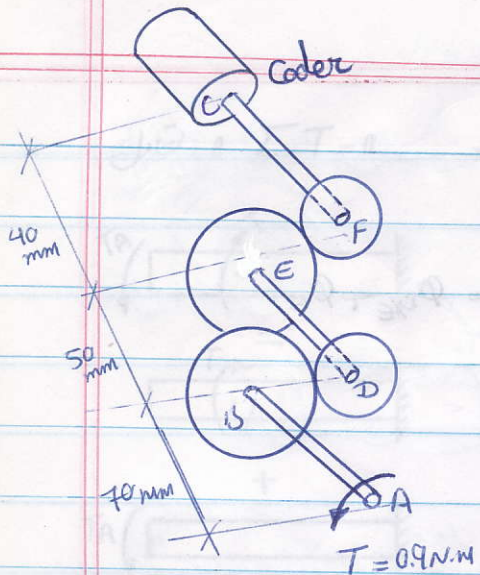 Coder
C
F
40
mm
E
50
mm
D
B
70 mm
A
T = 0.9 N.m